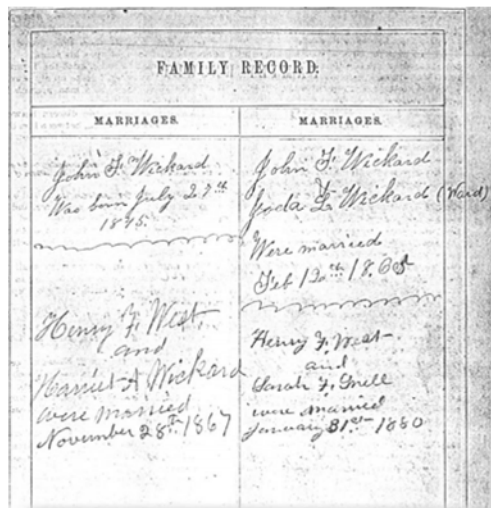 FAMILY RECORD.
MARRIAGES.
John F. Wickard
Was born July 27th
1845.
Henry F. West
and
Harriet A Wickard
were married
November 28th 1867
MARRIAGES.
John F. Wickard
L. Wickard (Ward)
Were married
Feb 12th 1865
Henry F. West
and
Sarah F.
were married
January 31st 1880